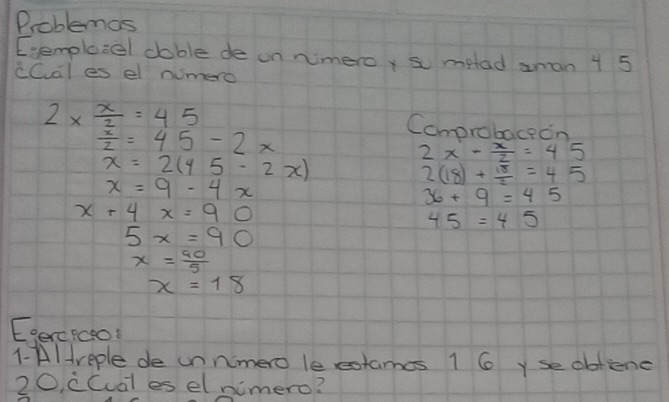 Problemas
Ejemplo: el doble de un número y su mitad suman 45
¿Cuál es el número
2 x x/2 = 45
x/2 = 45 - 2x
x = 2(45 - 2x)
x = 9 - 4x
x + 4x = 90
5x = 90
x = 90/5
x = 18
Comprobaceon
2x - x/2 = 45
2(18) + 18/2 = 45
36 + 9 = 45
45 = 45
Egerceceo:
1- Al treple de un número le estamos 16 y se obtiene
20, ¿Cuál es el número?